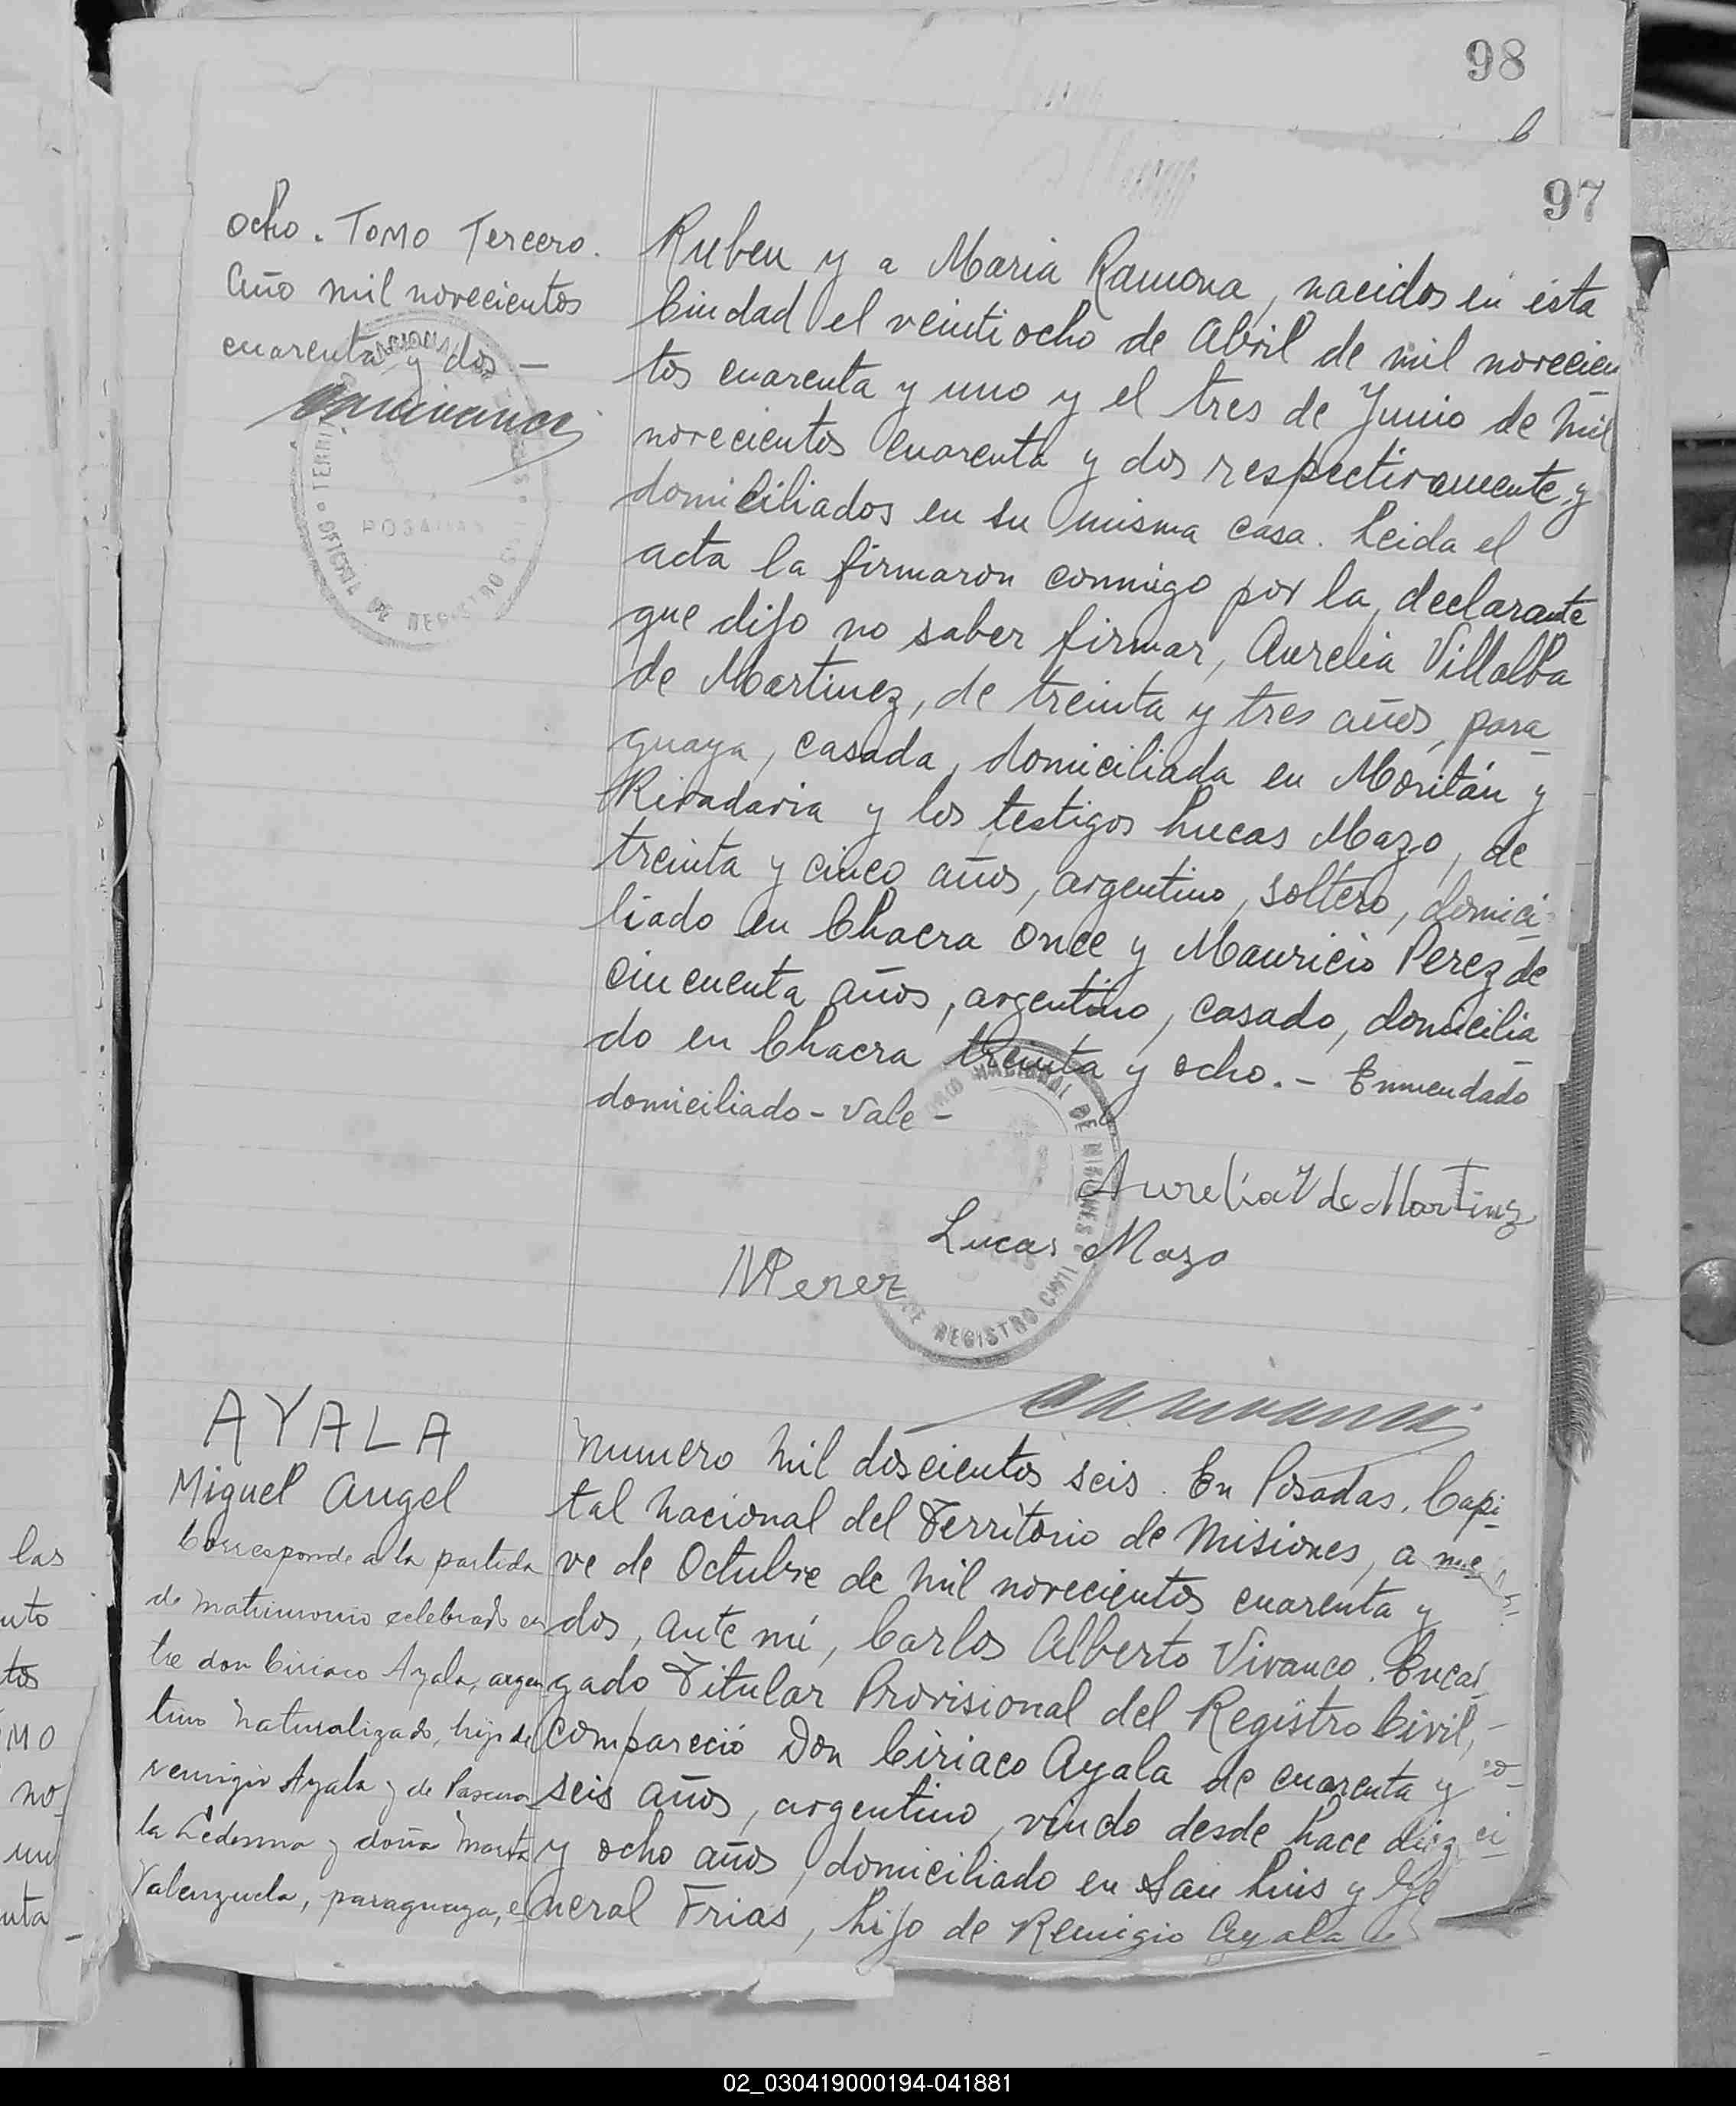 98
97
ocho. Tomo Tercero.
Año mil novecientos
cuarenta y dos —
POSADAS
OFICINA DE REGISTRO CIVIL
Ruben y a Maria Ramona, nacidos en ésta
Ciudad el veintiocho de Abril de mil novecien
tos cuarenta y uno y el tres de Junio de mil
novecientos cuarenta y dos respectivamente, y
domiciliados en su misma casa. Leida el
acta la firmaron conmigo por la declarante
que dijo no saber firmar, Aurelia Villalba
de Martinez, de treinta y tres años, para_
guaya, casada, domiciliada en Moritán y
Rivadavia y los testigos Lucas Mazo, de
treinta y cinco años, argentino, soltero, domici_
liado en Chacra once y Mauricio Perez de
cincuenta años, argentino, casado, domicilia_
do en Chacra treinta y ocho. - Enmendado
domiciliado - Vale -
NACIONAL DE MISIONES
DE REGISTRO CIVIL
Aurelia V de Martinz
Lucas Mazo
MPerez
AYALA
Miguel Angel
Corresponde a la partida
de matrimonio celebrado en
tre don Ciriaco Ayala, argen
tino naturalizado, hijo de
remigio Ayala y de Pascua
la Ledesma y doña Marta
Valenzuela, paraguaya, e
Numero mil doscientos seis. En Posadas, Capi_
tal Nacional del Territorio de Misiones, a nue_
ve de Octubre de mil novecientos cuarenta y
dos, ante mí, Carlos Alberto Vivanco. Encar_
gado Titular Provisional del Registro Civil,
compareció Don Ciriaco Ayala de cuarenta y
seis años, argentino, viudo desde hace diez
y ocho años, domiciliado en San Luis y Ge
neral Frias, hijo de Remigio Ayala
las
nto
tos
MO
no_
un
nta
02_030419000194-041881